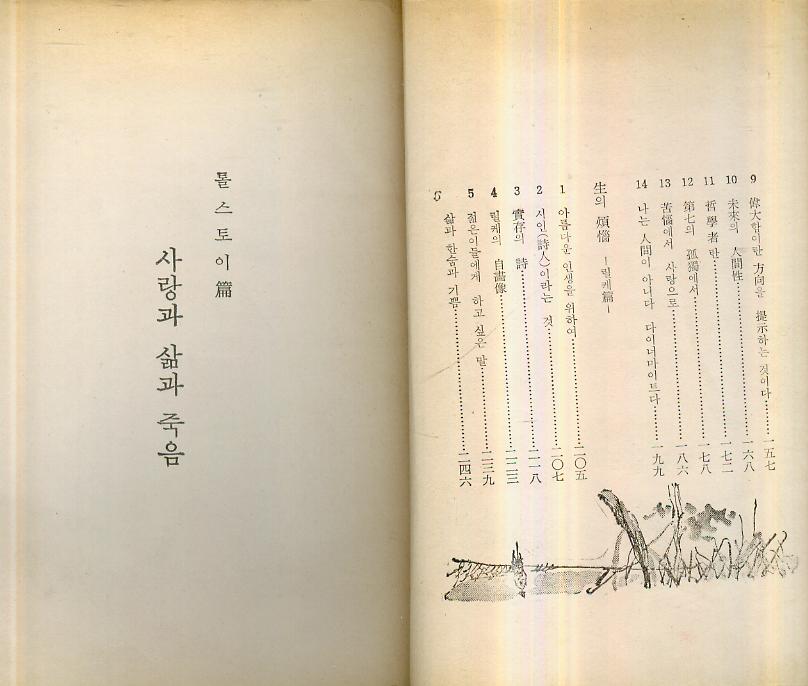 9 偉大함이란 方向을 提示하는 것이다……一五七
10 未來의 人間性……一六八
11 哲學者란……一七二
12 第七의 孤獨에서……一七八
13 苦惱에서 사랑으로……一八六
14 나는 人間이 아니다 다이너마이트다……一九九
生의 煩惱 —릴케篇—
1 아름다운 인생을 위하여……二〇五
2 시인(詩人)이라는 것……二〇七
3 實存의 詩……二一八
4 릴케의 自畵像……二二三
5 젊은이들에게 하고 싶은 말……二三九
6 삶과 한숨과 기쁨……二四六
톨스토이篇
사랑과 삶과 죽음